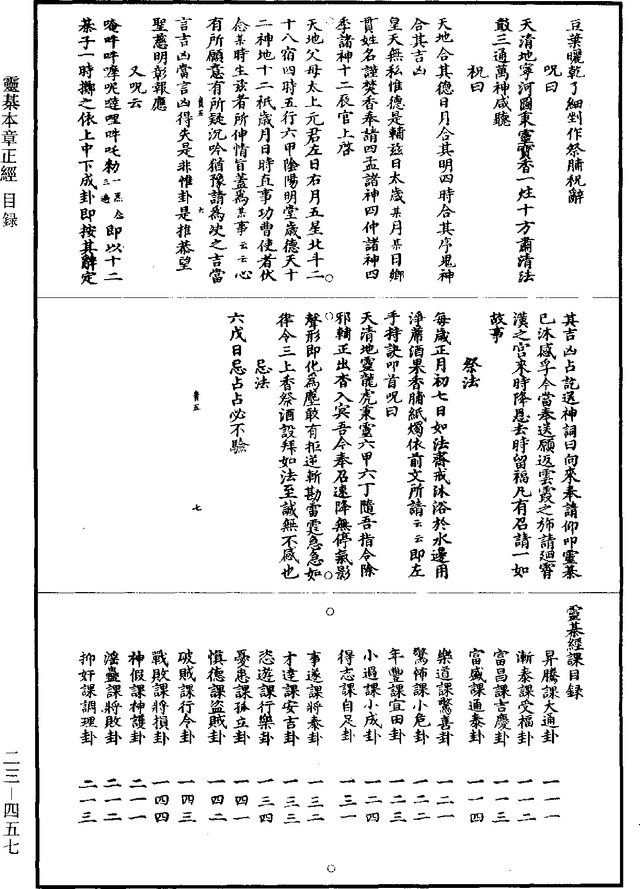 靈棊本章正經 目録
二三—四五七
豆葉曬乾了細剉作祭脯祝辭
呪曰
天清地寧河圖秉靈寶香一炷十方肅清法
鼓三通萬神咸聽
祝曰
天地合其德日月合其明四時合其序鬼神
合其吉凶
皇天無私惟德是輔兹日太歲某月某日鄉
貫姓名謹焚香奉請四孟諸神四仲諸神四
季諸神十二辰官上啓
天地父母太上元君左日右月五星北斗二
十八宿四時五行六甲陰陽明堂歲德天十
二神地十二祇歲月日時直事功曹使者伏
念某時生兹者所伸情旨蓋爲某事云云心
有所願意有所疑沉吟猶豫請爲決之吉當
言吉凶當言凶得失是非惟卦是推恭望
聖慈明彰報應
又呪云
唵吽吽摩呢噠哩吽吒勑一炁念三遍即以十二
棊子一時擲之依上中下成卦即按其辭定
其吉凶占訖送神詞曰向來奉請仰叩靈棊
已沐感孚今當奉送願返雲霞之斾請迴霄
漢之宫來時降恩去時留福凡有召請一如
故事
祭法
每歲正月初七日如法齋戒沐浴於水邊用
淨蓆酒果香脯紙燭依前文所請云云即左
手持訣叩首呪曰
天清地靈龍虎秉靈六甲六丁隨吾指令除
邪輔正出杳入冥吾今奉召速降無停氣影
聲形即化爲塵敢有拒逆斬勘雷霆急急如
律令三上香祭酒設拜如法至誠無不感也
忌法
六戊日忌占占必不驗
靈棊經課目録
昇騰課大通卦 一一一
漸泰課受福卦 一一二
富昌課吉慶卦 一一三
富盛課通泰卦 一一四
樂道課驚喜卦 一二一
驚怖課小危卦 一二二
年豐課宜田卦 一二三
小過課小成卦 一二四
得志課自足卦 一三一
事遂課將泰卦 一三二
才達課安吉卦 一三三
恣遊課行樂卦 一三四
憂患課孤立卦 一四一
慎德課盜賊卦 一四二
破賊課行令卦 一四三
戰敗課將損卦 一四四
神假課神護卦 二一一
淫蠱課將敗卦 二一二
抑奸課調理卦 二一三